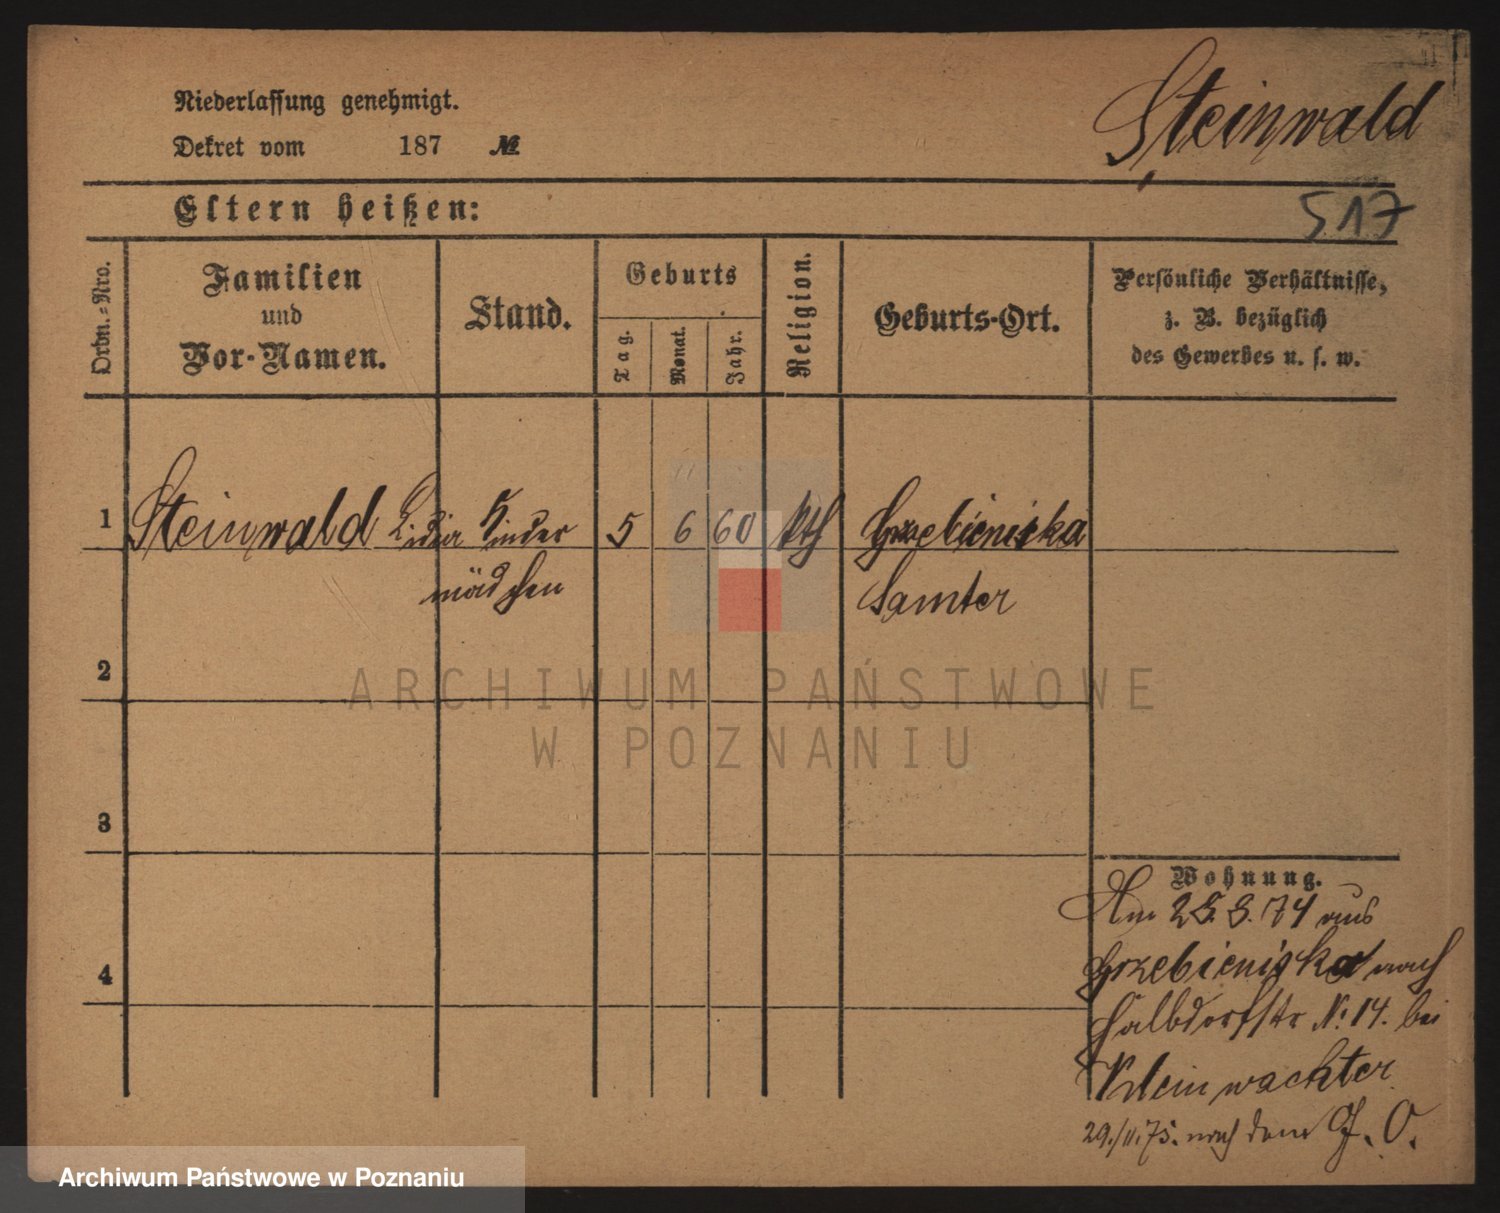 Niederlassung genehmigt.
Dekret vom 187 №
Steinwald
Eltern heißen:
517
Ordn.-Nro.
Familien
und
Vor-Namen.
Stand.
Geburts
Tag.
Monat.
Jahr.
Religion.
Geburts-Ort.
Persönliche Verhältnisse,
z. B. bezüglich
des Gewerbes u. s. w.
1 Steinwald Lidia Kinder 5 6 60 kth Grzebienisko
mädchen Samter
2
3
4
ARCHIWUM PAŃSTWOWE
W POZNANIU
Wohnung.
Am 25.8.74 aus
Grzebienisko nach
Halbdorfstr N: 14. bei
Kleinwachter
29./11.75. nach dem G. O.
Archiwum Państwowe w Poznaniu